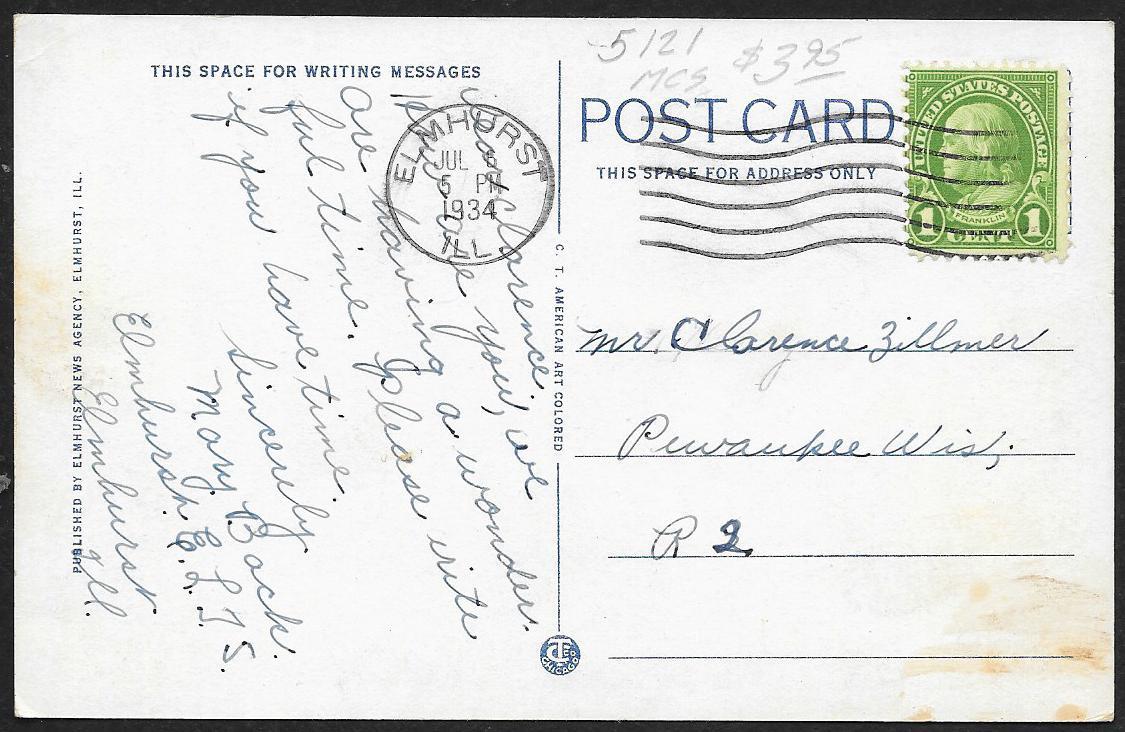 5121 $3.95
MCS
THIS SPACE FOR WRITING MESSAGES
POST CARD
THIS SPACE FOR ADDRESS ONLY
UNITED STATES POSTAGE
FRANKLIN
1 CENT 1
ELMHURST
JUL 5
5 PM
1934
ILL
Clarence
How are you, we
are having a wonder-
ful time. Please write
if you have time.
Sincerely
Mary Back.
Elmhurst E. L. T. S.
Elmhurst
Ill.
Mr. Clarence Zillmer
Pewaukee Wis.
R 2
PUBLISHED BY ELMHURST NEWS AGENCY, ELMHURST, ILL.
C. T. AMERICAN ART COLORED
CT CO. CHICAGO